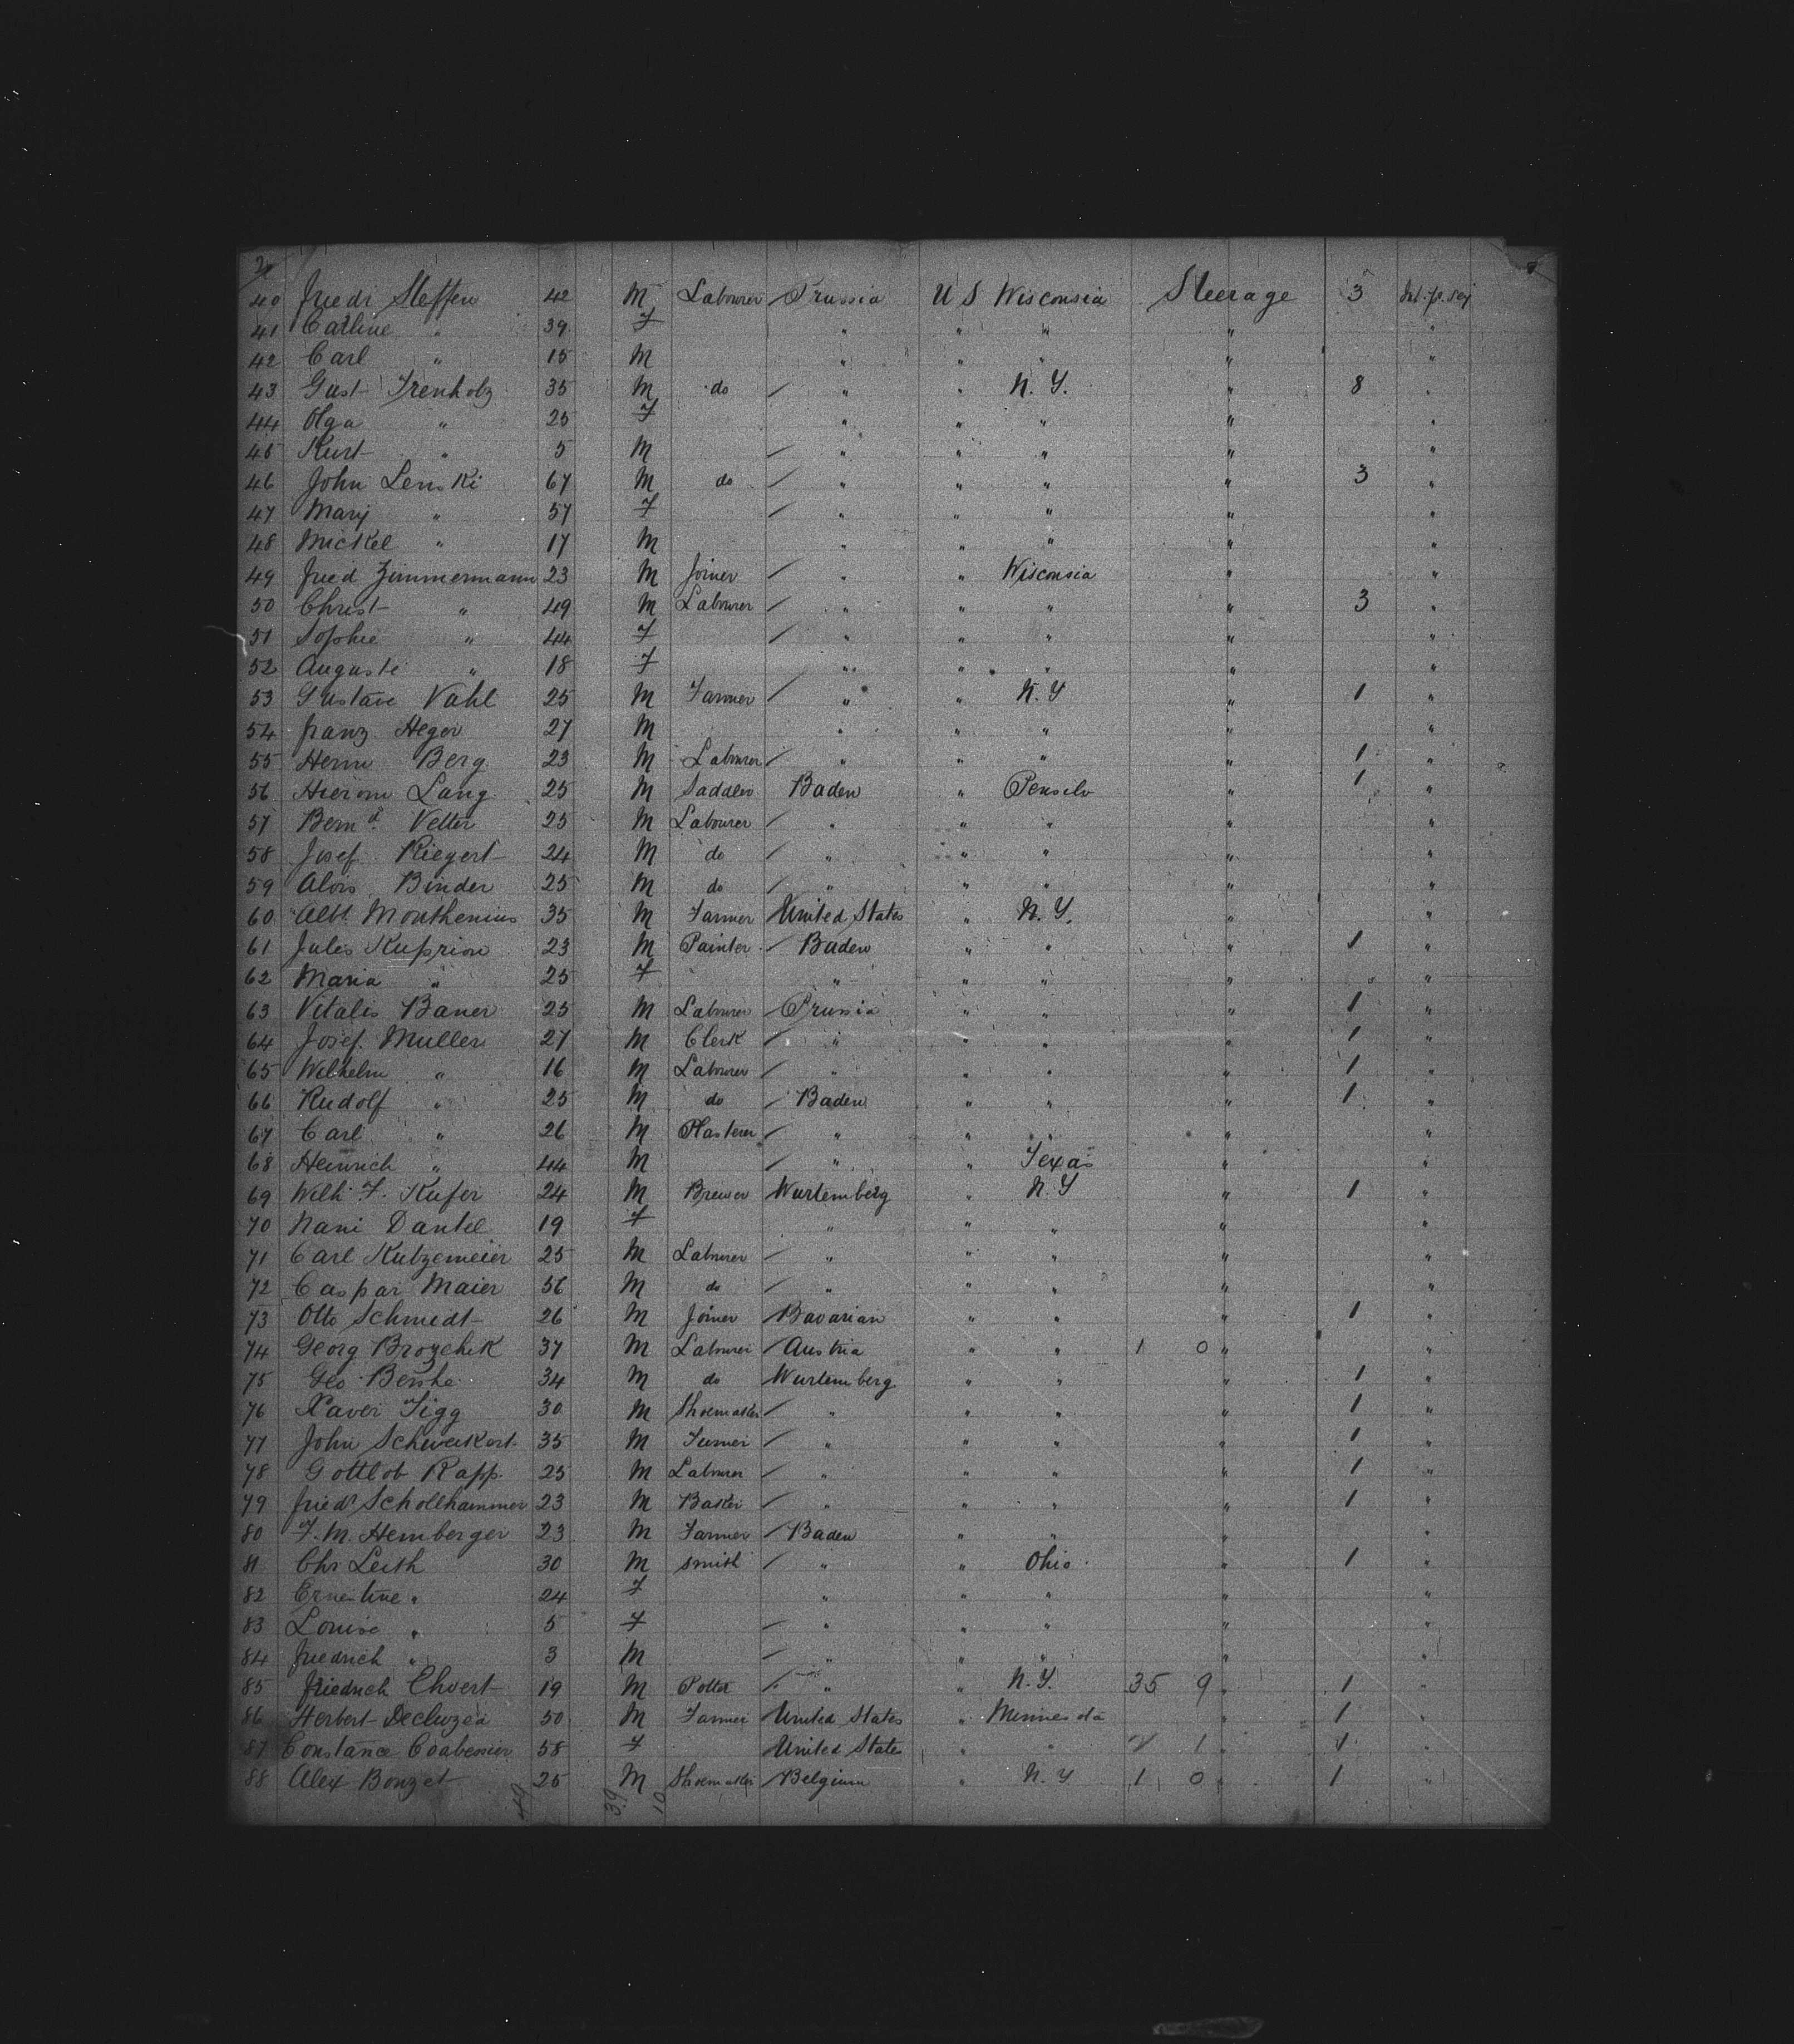 2
40 Friedr Steffen 42 M Labourer Prussia U S Wisconsin Steerage 3
41 Catline " 39 F " " " " "
42 Carl " 15 M " " " " "
43 Gust Trenholz 35 M do " " N. Y. " 8 "
44 Olga " 25 F " " " " "
45 Kurt " 5 M " " " " "
46 John Lenski 67 M do " " " " 3 "
47 Mary " 57 F " " " " "
48 Mickel " 17 M " " " " "
49 Fried Zimmermann 23 M Joiner " " Wisconsin " "
50 Christ " 49 M Labourer " " " " 3 "
51 Sophie " 44 F " " " " "
52 Auguste " 18 F " " " " "
53 Gustave Vahl 25 M Farmer " " N. Y " 1 "
54 Franz Heger 27 M " " " " "
55 Herm Berg 23 M Labourer " " " " 1 "
56 Hieron Lang 25 M Saddler Baden " Pensilv " 1 "
57 Bernd. Vetter 25 M Labourer " " " " "
58 Josef Riegert 24 M do " " " " "
59 Alois Binder 25 M do " " " " "
60 Albt Monthenius 35 M Farmer United States " N. Y. " "
61 Jules Kuprion 23 M Painter Baden " " " 1 "
62 Maria " 25 F " " " " "
63 Vitalis Baner 25 M Labourer Prussia " " " 1 "
64 Josef Muller 27 M Clerk " " " " 1 "
65 Wilhelm " 16 M Labourer " " " " 1 "
66 Rudolf " 25 M do Baden " " " 1 "
67 Carl " 26 M Plasterer " " " " "
68 Heinrich " 44 M " " Texas " "
69 Wilh F. Kufer 24 M Brewer Wurtemberg " N. Y " 1 "
70 Nani Dantel 19 F " " " " "
71 Carl Kutzemeier 25 M Labourer " " " " "
72 Caspar Maier 56 M do " " " " "
73 Otto Schmidt 26 M Joiner Bavarian " " " 1 "
74 Georg Brozchik 37 M Labourer Austria " " 1 0 " "
75 Geo Benshe 34 M do Wurtemberg " " " 1 "
76 Xaver Figg 30 M Shoemaker " " " " 1 "
77 John Schweikart 35 M Turner " " " " 1 "
78 Gottlob Rapp 25 M Labourer " " " " 1 "
79 Friedr Schollhammer 23 M Baker " " " " 1 "
80 F. M. Hemberger 23 M Farmer Baden " " " "
81 Chr Leith 30 M Smith " " Ohio " 1 "
82 Ernestine " 24 F " " " " "
83 Louise " 5 F " " " " "
84 Friedrich " 3 M " " " " "
85 Friedrich Ehvert 19 M Potter " " N. Y. 35 9 " 1 "
86 Herbert 50 M Farmer United States " Minnesota " 1 "
87 Constance 58 F United States " " 1 " 1 "
88 Alex Bonzet 25 M Shoemaker Belgium " N. Y 1 0 " 1 "
49 39 10